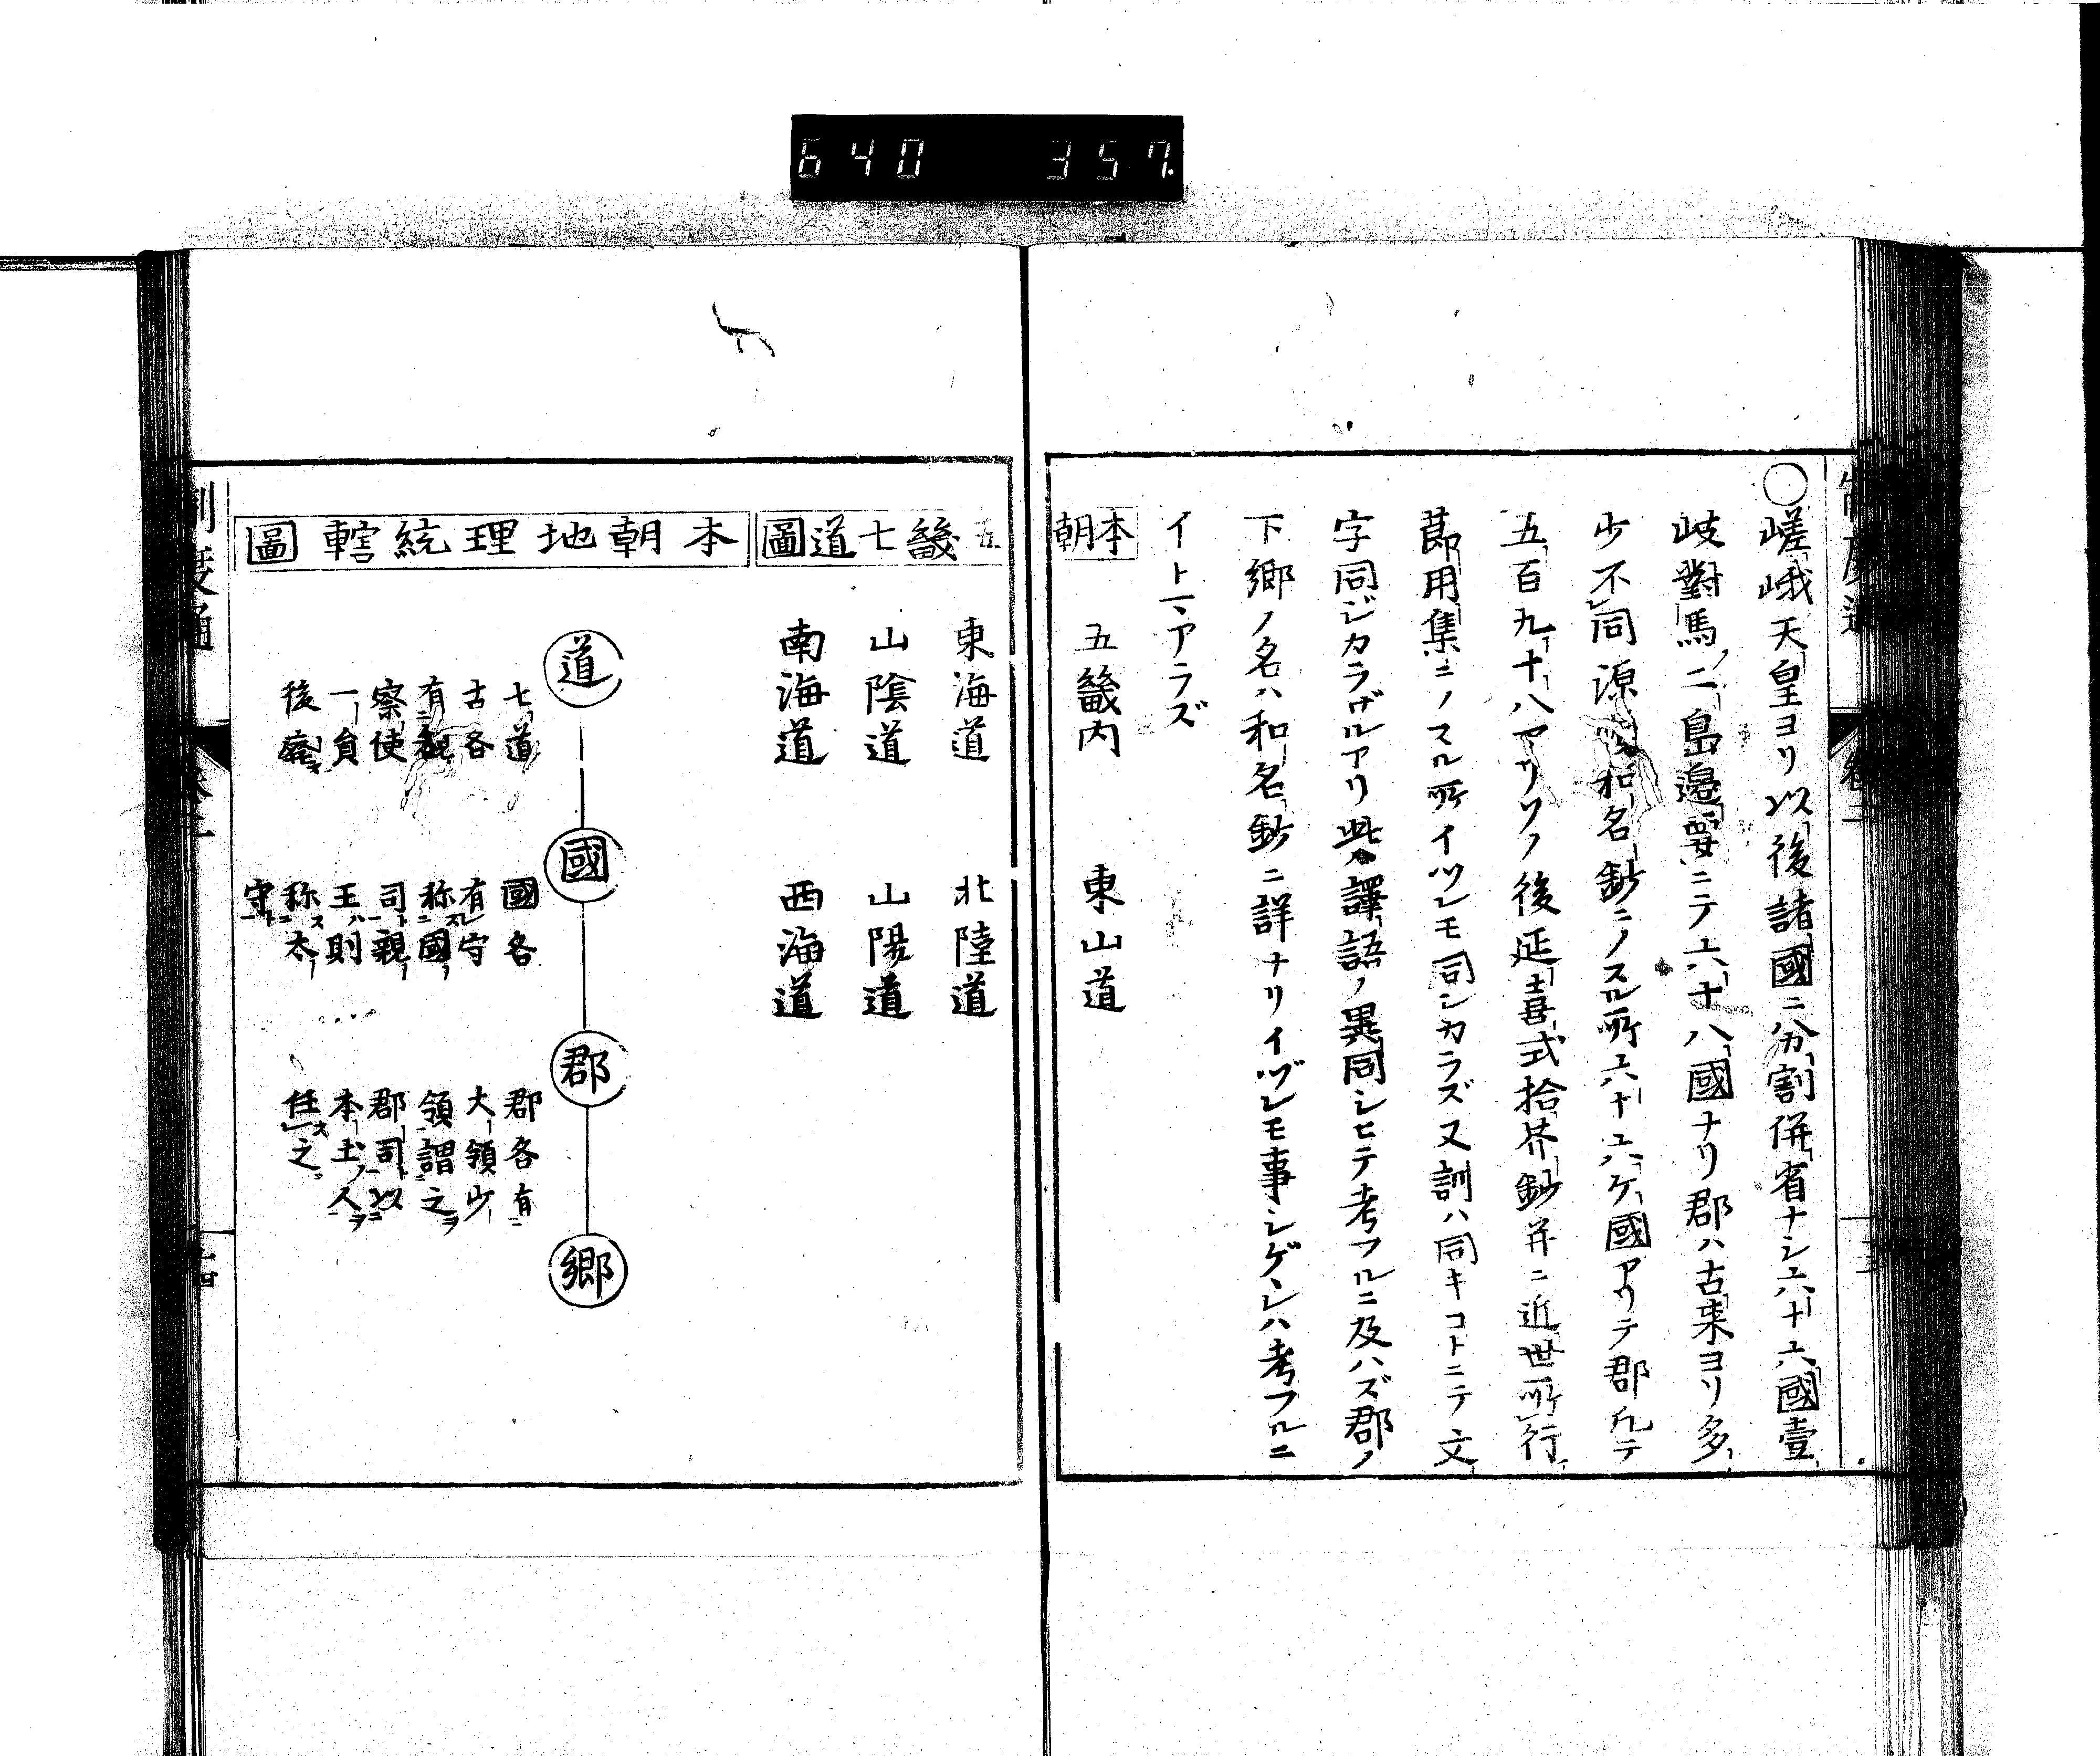 640 357.
○嵯峨天皇ヨリ以後諸國ニ分割併省ナシ六十六國壹
岐對馬ノ二島邉要ニテ六十八國ナリ郡ハ古来ヨリ多
少不同源 和名鈔ニノスル所六十六ケ國アリテ郡凡テ
五百九十八アリソノ後延喜式拾芥鈔并ニ近世所行
節用集ニノスル所イツレモ同シカラズ又訓ハ同キコトニテ文
字同ジカラザルアリ此譯語ノ異同シヒテ考フルニ及ハズ郡ノ
下郷ノ名ハ和名鈔ニ詳ナリイヅレモ事シゲシハ考フルニ
イトマアラズ
本朝
五畿内 東山道
五畿七道圖
東海道 北陸道
山陰道 山陽道
南海道 西海道
本朝地理統轄圖
道
國
郡
郷
七道
古各
有観
察使
一員
後廃ス
國各
有守
称ス國
司ト親
王ハ則
称ス太
守ト
郡各有
大領少
領謂之ヲ
郡司以
本土ノ人ヲ
任ス之
制度通 卷三 十四